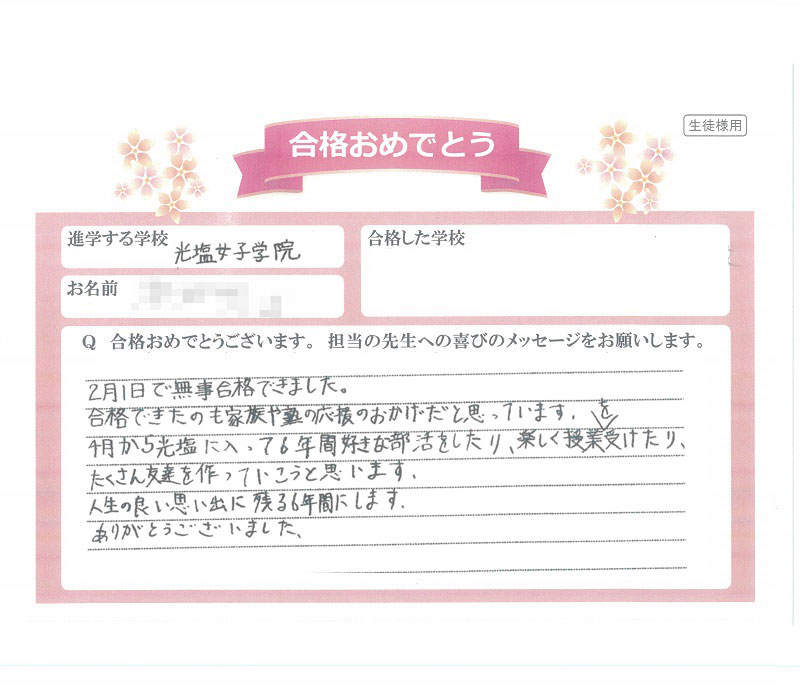 生徒様用
合格おめでとう
進学する学校
光塩女子学院
合格した学校
お名前
Q 合格おめでとうございます。担当の先生への喜びのメッセージをお願いします。
2月1日で無事合格できました。
合格できたのも家族や塾の応援のおかげだと思っています。
4月から光塩に入って6年間好きな部活をしたり、楽しく授業を受けたり、
たくさん友達を作っていこうと思います。
人生の良い思い出に残る6年間にします。
ありがとうございました、